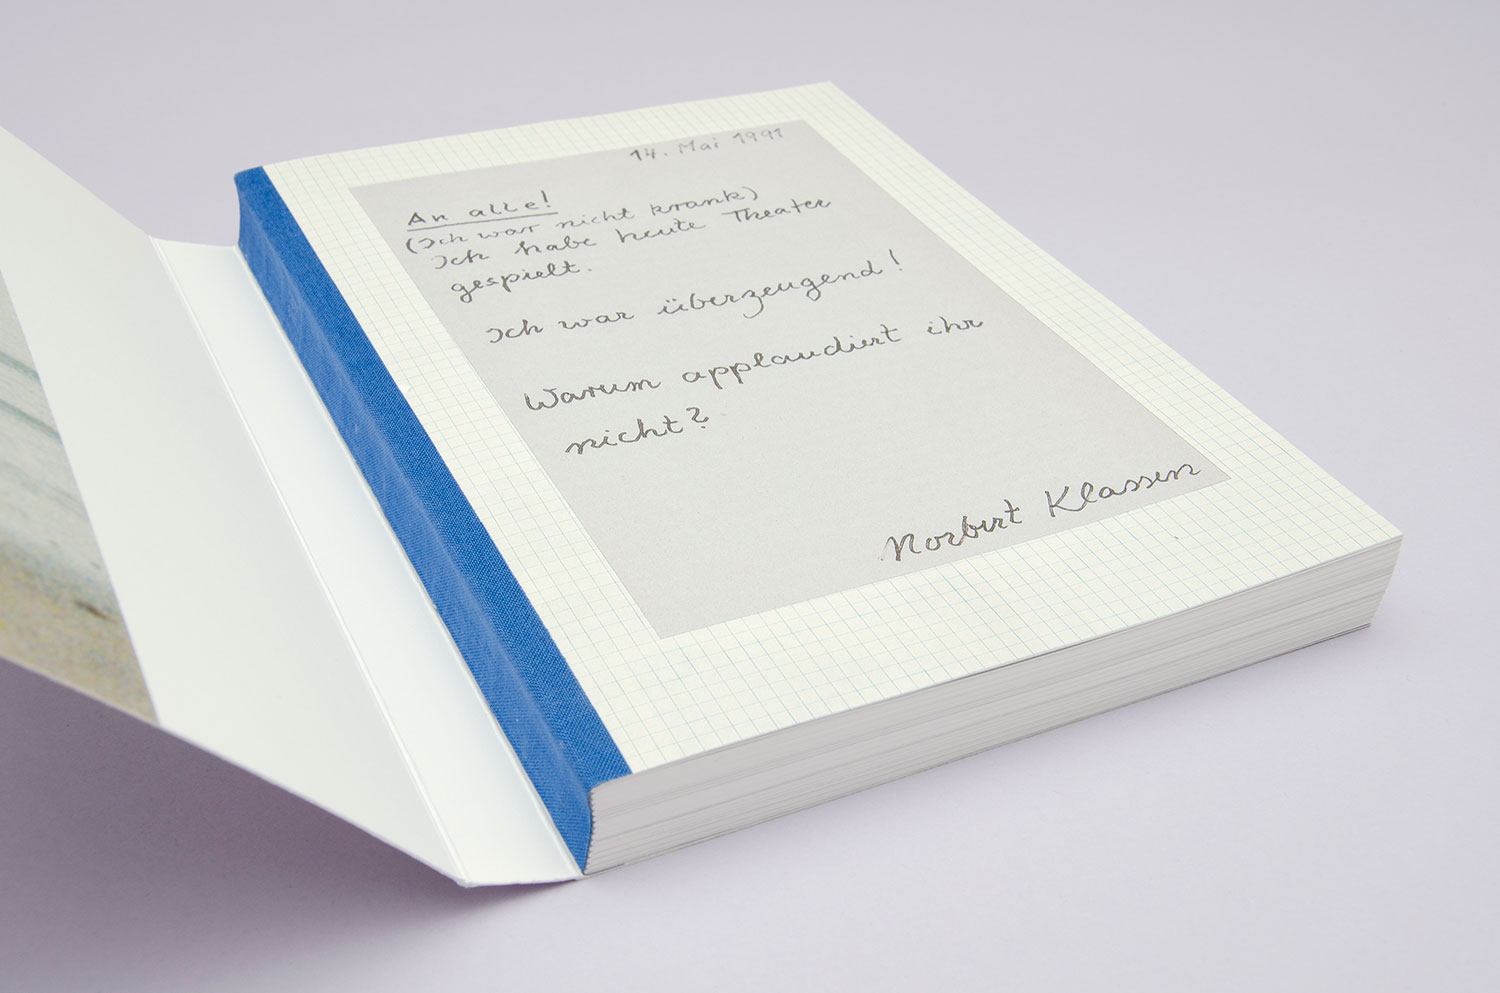 14. Mai 1991
An alle!
(Ich war nicht krank)
Ich habe heute Theater
gespielt.
Ich war überzeugend!
Warum applaudiert ihr
nicht?
Norbert Klassen